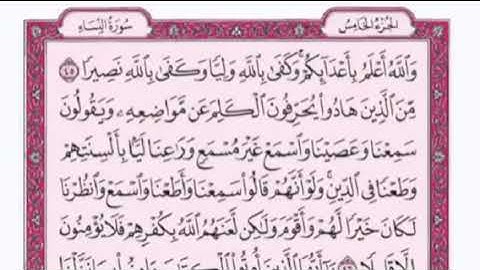 الجزء الخامس
سورة النساء
وَٱللَّهُ أَعۡلَمُ بِأَعۡدَآئِكُمۡۚ وَكَفَىٰ بِٱللَّهِ وَلِيّٗا وَكَفَىٰ بِٱللَّهِ نَصِيرٗا ٤٥
مِّنَ ٱلَّذِينَ هَادُواْ يُحَرِّفُونَ ٱلۡكَلِمَ عَن مَّوَاضِعِهِۦ وَيَقُولُونَ
سَمِعۡنَا وَعَصَيۡنَا وَٱسۡمَعۡ غَيۡرَ مُسۡمَعٖ وَرَٰعِنَا لَيَّۢا بِأَلۡسِنَتِهِمۡ
وَطَعۡنٗا فِي ٱلدِّينِۚ وَلَوۡ أَنَّهُمۡ قَالُواْ سَمِعۡنَا وَأَطَعۡنَا وَٱسۡمَعۡ وَٱنظُرۡنَا
لَكَانَ خَيۡرٗا لَّهُمۡ وَأَقۡوَمَ وَلَٰكِن لَّعَنَهُمُ ٱللَّهُ بِكُفۡرِهِمۡ فَلَا يُؤۡمِنُونَ